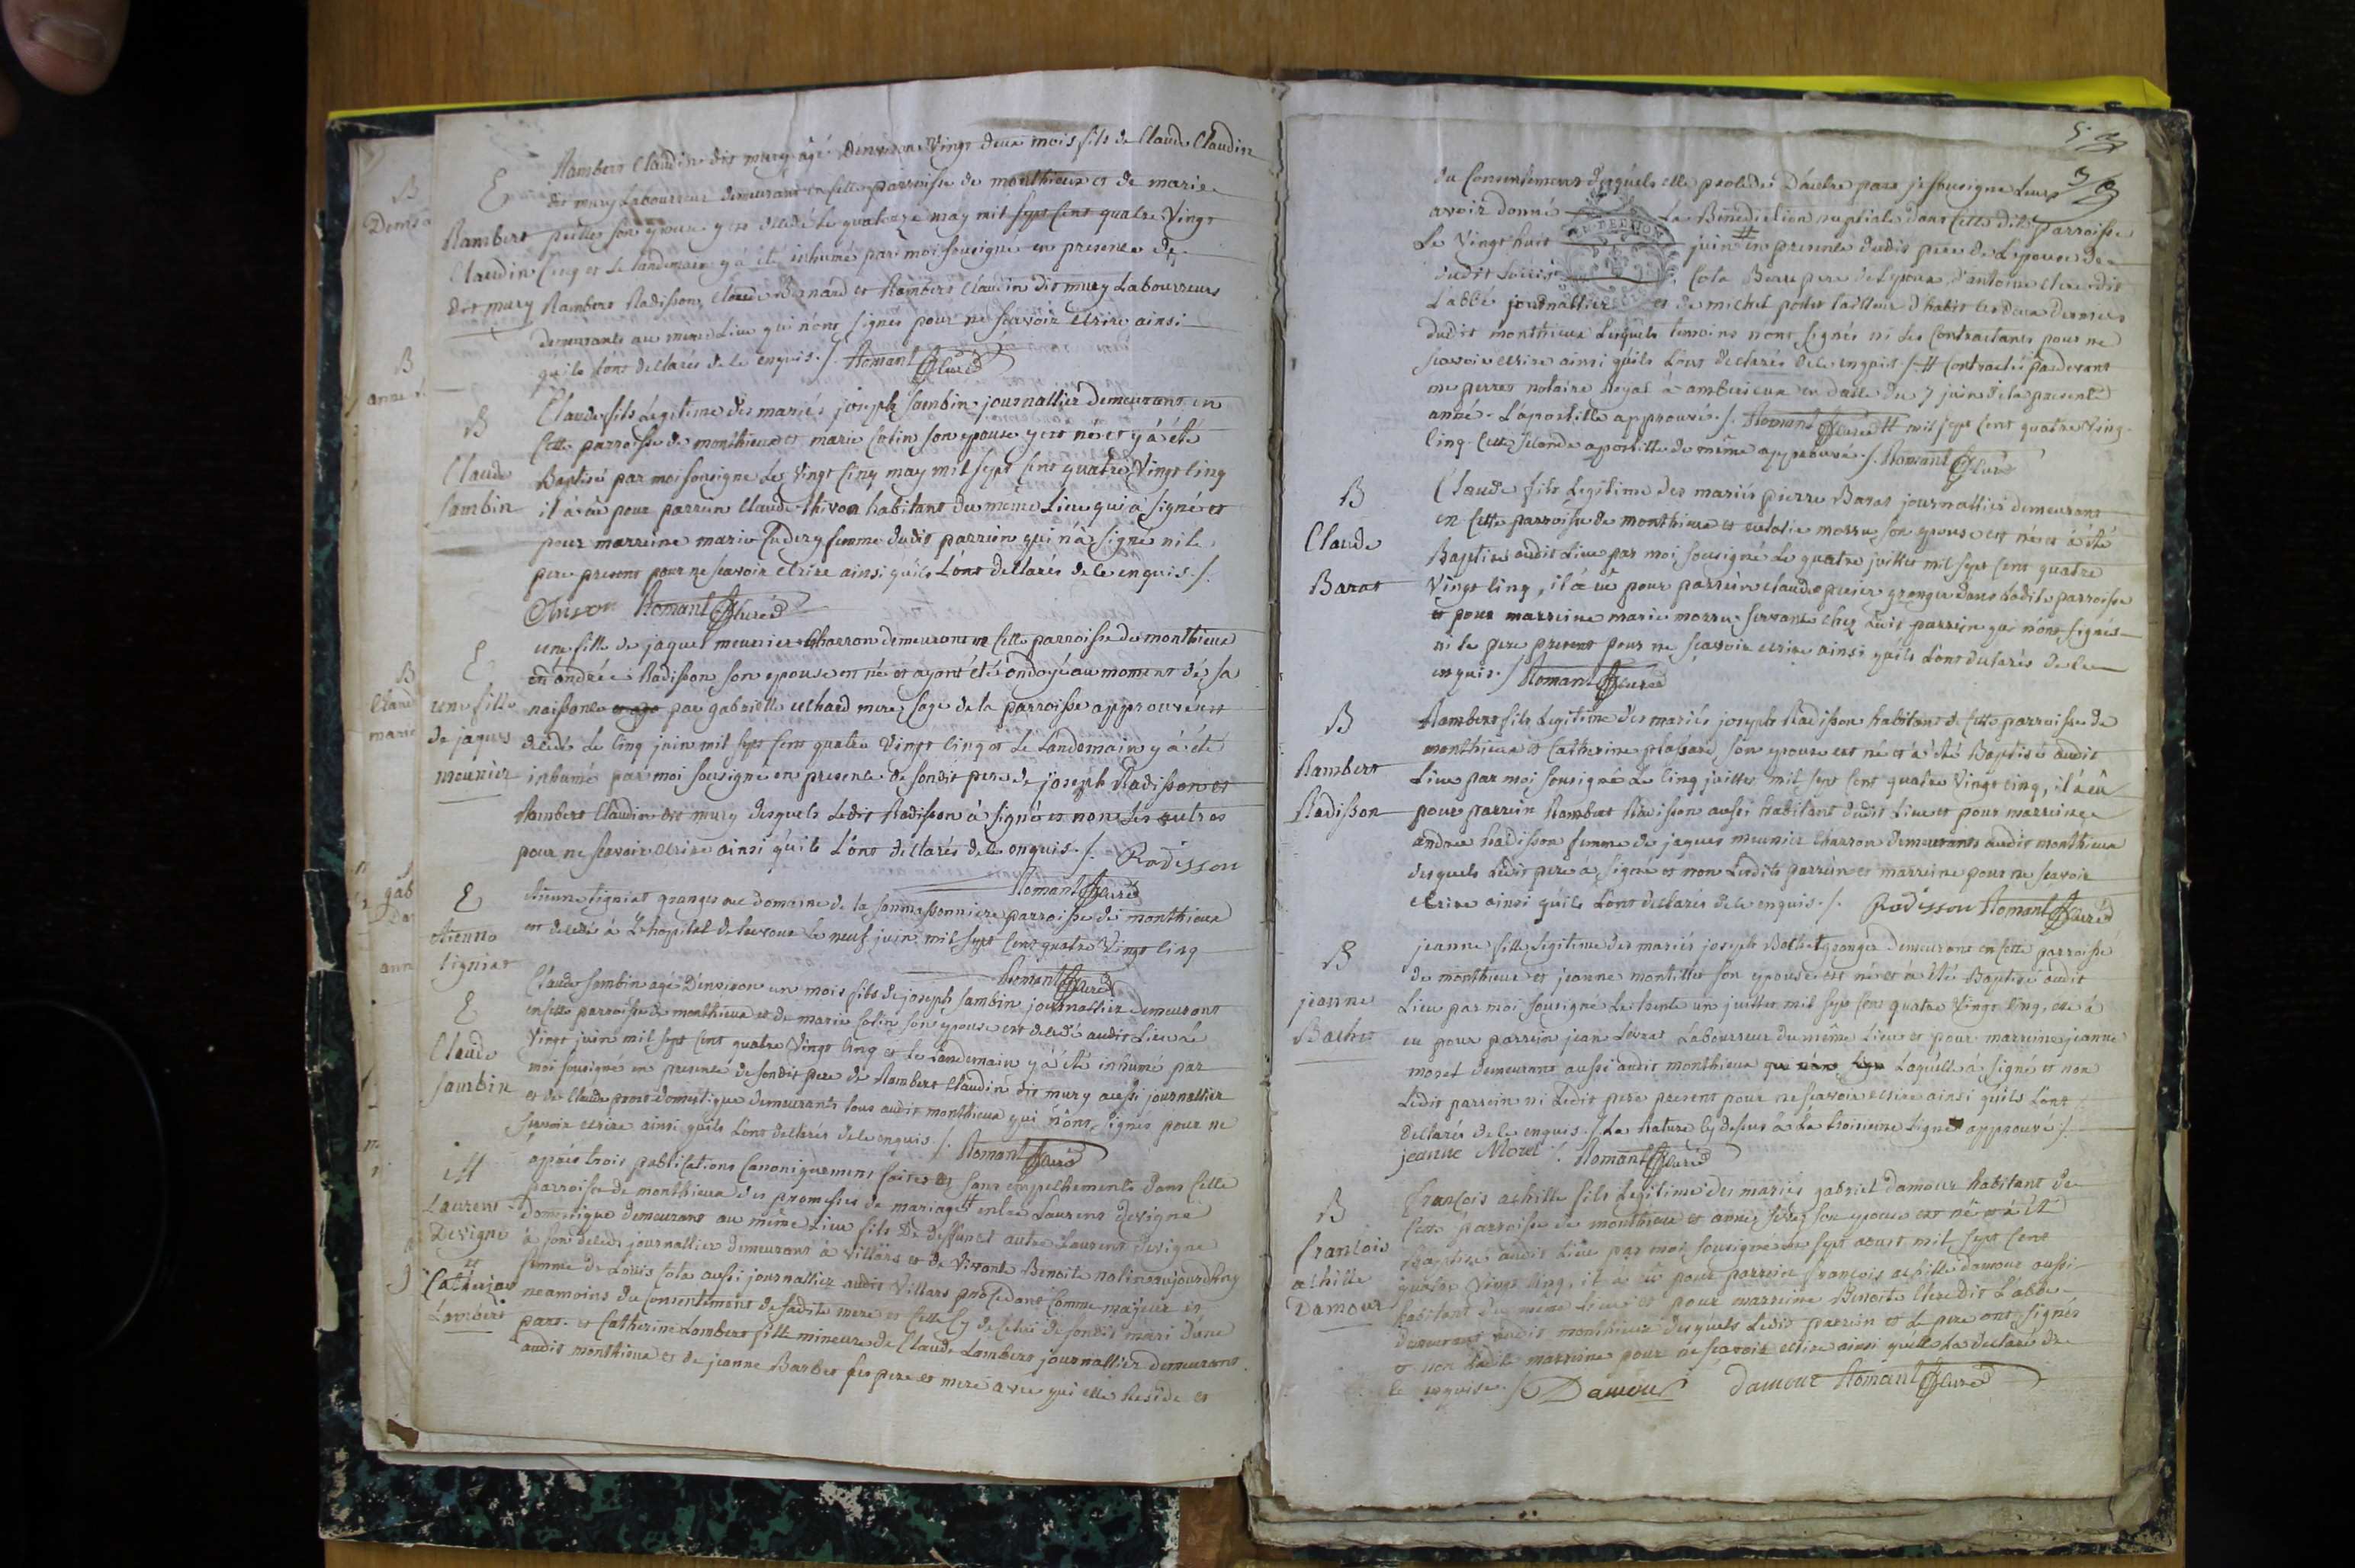 E
Rambert
Claudin
dit mury
Rambert Claudin dit mury agé d'environ Vingt deux mois fils de Claude Claudin
dit mury Laboureur demeurant en cette parroisse de monthieux et de marie
son epouse y est decedé le quatorze may mil sept cent quatre Vingt
Cinq et le landemain y à été inhumé par moi sousigné en presence de
Rambert Radisson, Claude Bernard et Rambert Claudin dit mury Laboureurs
demeurants au meme Lieu qui n'ont signés pour ne scavoir ecrire ainsi
qu'ils L'ont declarés de ce enquis ./. Romant Curé
B
Claude
Sambin
Claude fils Legitime des mariés joseph Sambin journallier demeurant en
cette parroisse de monthieux et marie Colin son epouse y est né et y à été
Baptisé par moi sousigné Le Vingt Cinq may mil sept cent quatre Vingt Cinq
il à eû pour parrein Claude thivon habitant du même Lieu qui à signé et
pour marreine marie femme dudit parrein qui n'à signé ni le
pere present pour ne scavoir ecrire ainsi qu'ils L'ont declarés de ce enquis ./.
Romant Curé
E
une fille
de jaques
meunier
une fille de jaques meunier Charron demeurant en cette parroisse de monthieux
et d'andrée Radisson son epouse est né et ayant été ondoyé au moment de sa
naissance par gabrielle uchard mere sage de la parroisse approuvée est
decedé Le Cinq juin mil sept cent quatre Vingt Cinq et Le Landemain y à été
inhumé par moi sousigné en presence de sondit pere de joseph Radisson et
Rambert Claudin dit mury desquels Ledit Radisson à signé et non Les autres
pour ne scavoir ecrire ainsi qu'ils L'ont declarés de ce enquis ./. Radisson
Romant Curé
E
Etienne
ligniat
Etienne ligniat granger au domaine de la parroisse de monthieux
est decedé à L'hopital de le neuf juin mil sept cent quatre Vingt Cinq
Romant Curé
E
Claude
Sambin
Claude Sambin agé D'environ un mois fils de joseph Sambin journallier demeurant
en cette parroisse de monthieux et de marie Colin son epouse est decedé audit Lieu le
Vingt juin mil sept cent quatre Vingt Cinq et Le Landemain y à été inhumé par
moi sousigné en presence de sondit pere de Rambert Claudin dit mury aussi journallier
et de Claude domestique demeurants tous audit monthieux qui n'ont signés pour ne
scavoir ecrire ainsi qu'ils L'ont declarés de ce enquis ./. Romant Curé
M
Laurent
Devigne
et
Catherine
Lambert
après trois publications Canoniquement faites et sans empechements dans cette
parroisse de monthieux des promesses de mariage # entre Laurent Devigne
domestique demeurant au même Lieu fils De deffunct autre Laurent devigne
à son deces journallier demeurant à Villars et de Vivante Benoite nolin aujourd'huy
femme de Louis Cota aussi journallier audit Villars procedant Comme majeur et
neamoins du Consentement de sadite mere et celle cy de celui de sondit mari d'une
part. et Catherine Lambert fille mineure de Claude Lambert journallier demeurant
audit monthieux et de jeanne Barbet ses pere et mere avec qui elle Reside et
du Consentement desquels elle procede D'autre part je sousigné Leurs
avoir donné La Benediction nuptiale dans cette dite Parroisse
Le Vingt huit juin # en presence dudit pere de L'epouse de
dudit Louis Cota Beau pere de L'epoux d'antoine Clere dit
L'abbé journallier et de michel tailleur d'habit Les deux derniers
dudit monthieux Lesquels temoins n'ont signés ni Les Contractants pour ne
scavoir ecrire ainsi qu'ils L'ont declarés de ce enquis ./. # Contractés pardevant
me perret notaire Royal à amberieux en datte du 7 juin de la presente
année. L'apostille approuvée ./. Romant Curé # mil sept cent quatre Vingt
Cinq. cette seconde apostille de même approuvée ./. Romant Curé
B
Claude
Barat
Claude fils Legitime des mariés pierre Barat journallier demeurant
en cette parroisse de monthieux et eulalie morru son epouse est né et à été
Baptisé audit Lieu par moi sousigné Le quatre juillet mil sept cent quatre
Vingt Cinq, il à eû pour parrein Claude granger dans Ladite parroisse
et pour marreine marie morru servante chez Ledit parrein qui n'ont signés
ni le pere present pour ne scavoir ecrire ainsi qu'ils L'ont declarés de ce
enquis ./. Romant Curé
B
Rambert
Radisson
Rambert fils Legitime des mariés joseph Radisson habitant de cette parroisse de
monthieux et Catherine son epouse est né et à été Baptisé audit
Lieu par moi sousigné Le Cinq juillet mil sept cent quatre Vingt Cinq, il à eû
pour parrein Rambert Radisson aussi habitant dudit Lieu et pour marreine
andrée Radisson femme de jaques meunier Charron demeurants audit monthieux
desquels Ledit pere à signé et non Lesdits parrein et marreine pour ne scavoir
ecrire ainsi qu'ils L'ont declarés de ce enquis ./. Radisson Romant Curé
B
jeanne
jeanne fille Legitime des mariés joseph granger demeurant en cette parroisse
de monthieux et jeanne montillet son epouse est né et à été Baptisé audit
Lieu par moi sousigné Le trente un juillet mil sept cent quatre Vingt Cinq, elle à
eu pour parrein jean Levrat Laboureur du même Lieu et pour marreine jeanne
morel demeurant aussi audit monthieux Laquelle à signé et non
Ledit parrein ni Ledit pere present pour ne scavoir ecrire ainsi qu'ils L'ont
declarés de ce enquis ./. La Rature cy dessus à La troisieme Ligne approuvé ./.
jeanne Morel ./. Romant Curé
B
francois
achille
Damour
François achille fils Legitime des mariés gabriel damour habitant de
cette parroisse de monthieux et anne son epouse est né et à été
Baptisé audit Lieu par moi sousigné le sept aoust mil sept cent
quatre Vingt Cinq, il à eû pour parrein François achille damour aussi
habitant du même Lieu et pour marreine Benoite Clere dit L'abbé
demeurant audit monthieux desquels Ledit parrein et Le pere ont signés
et non Ladite marreine pour ne scavoir ecrire ainsi qu'elle La declaré de
ce enquise ./. Damour damour Romant Curé